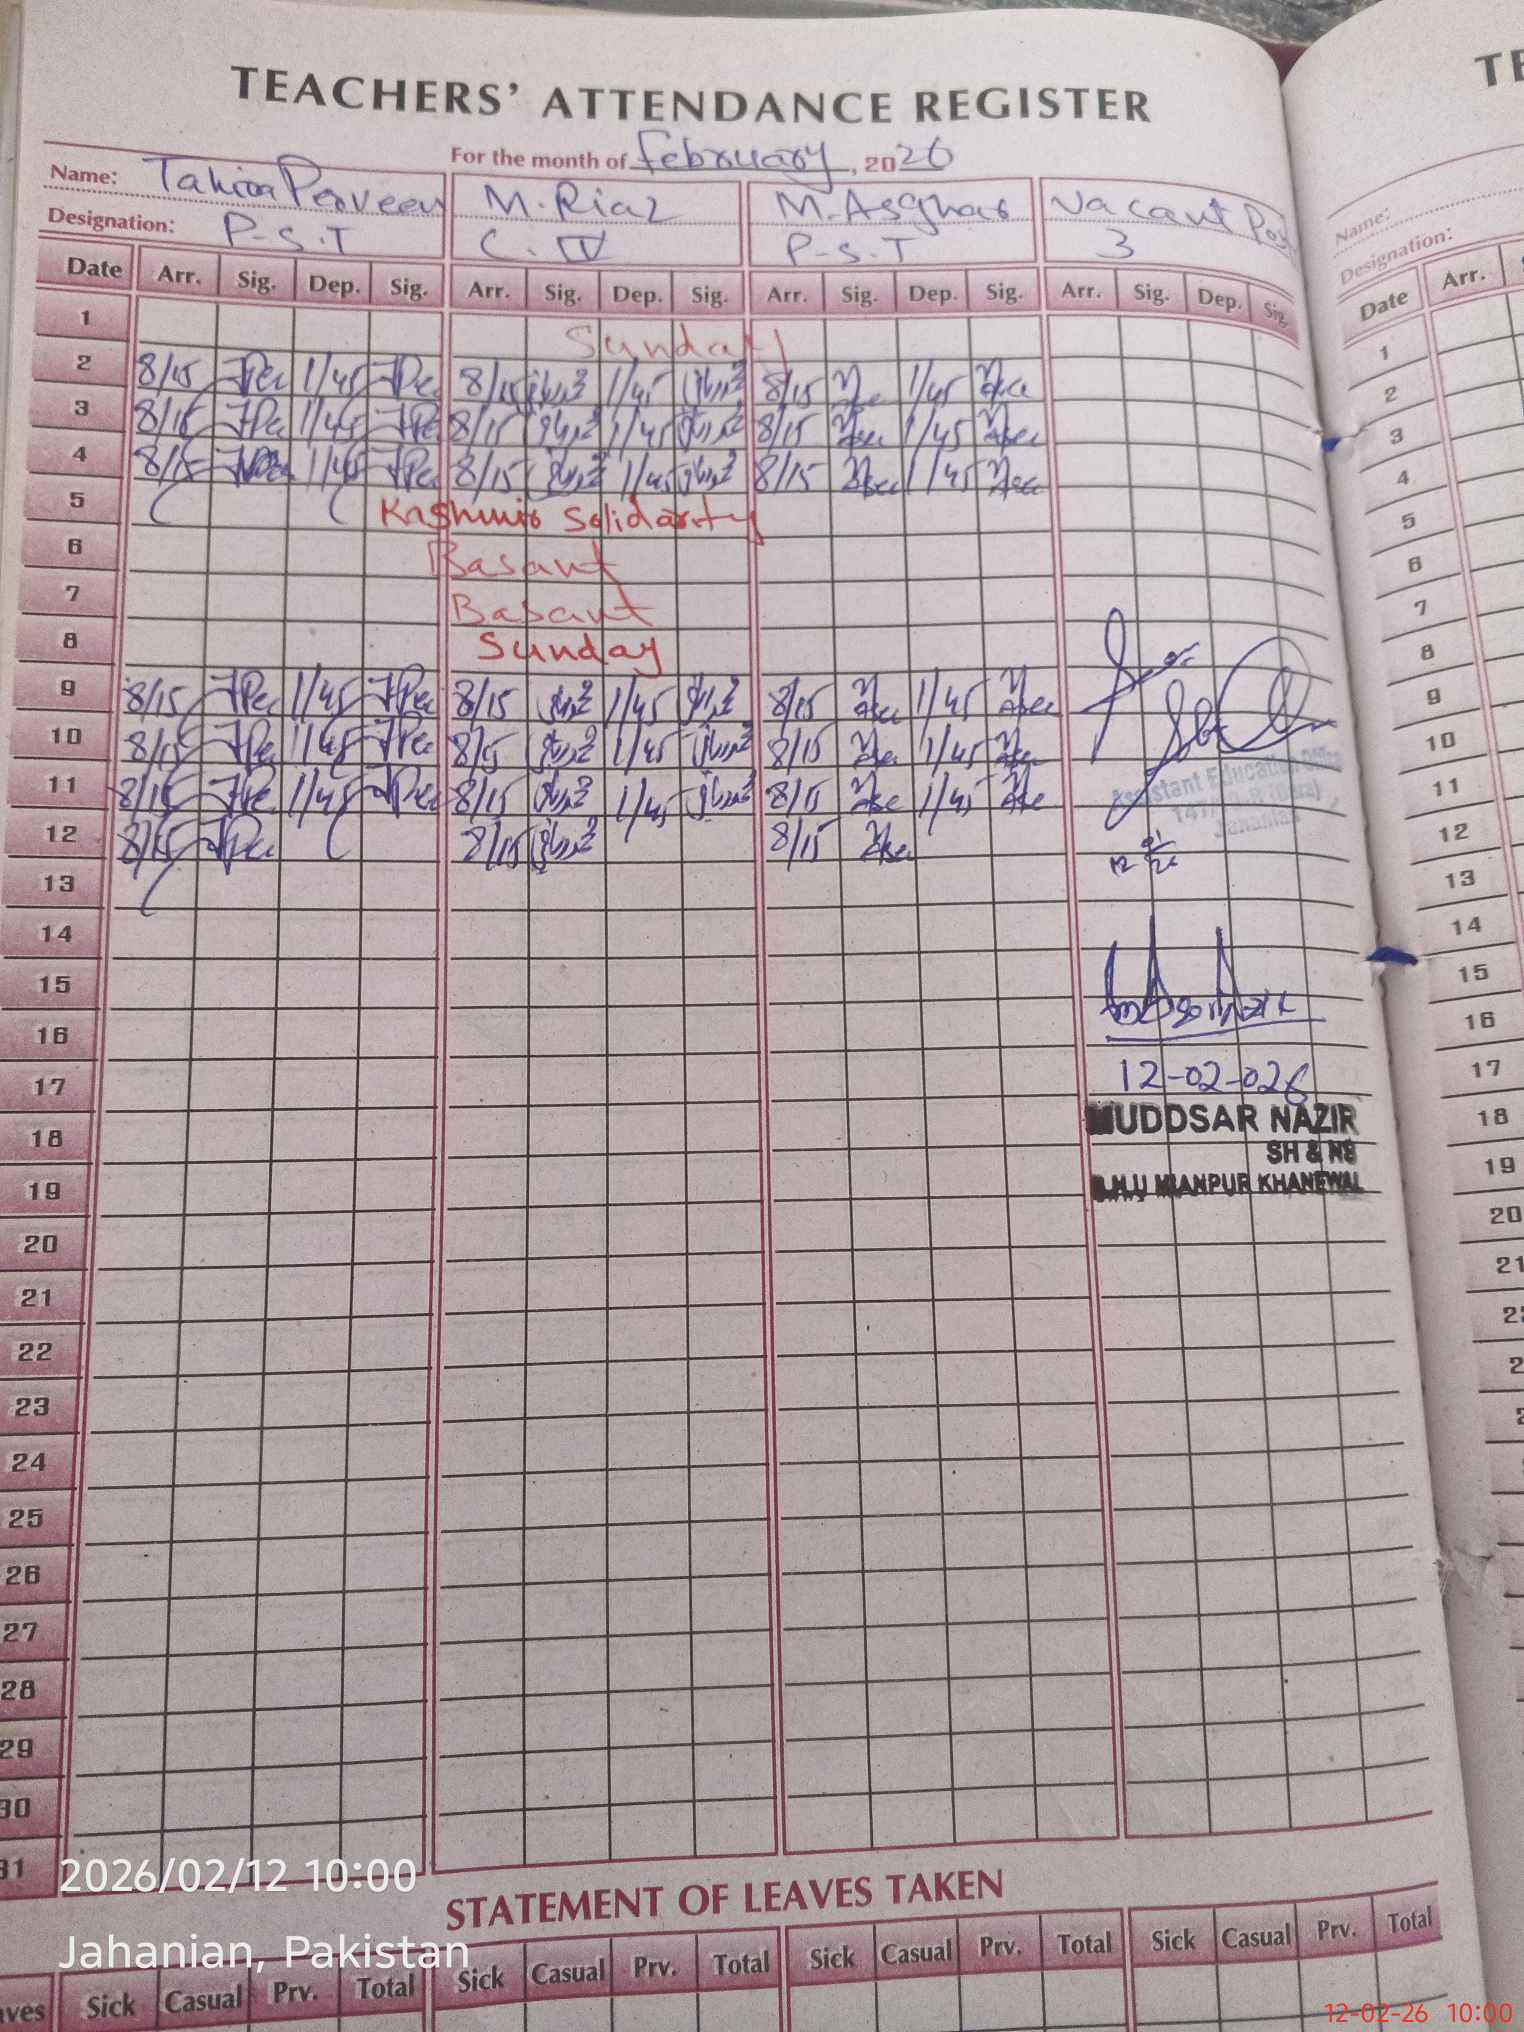 TEACHERS' ATTENDANCE REGISTER
TE
For the month of February, 2026
Name: Tahira Perveen M. Riaz M. Asghar Vacant Post
Designation: P-S.T C. IV P-S.T 3
Name:
Designation:
Date Arr. Sig. Dep. Sig. Arr. Sig. Dep. Sig. Arr. Sig. Dep. Sig. Arr. Sig. Dep. Sig.
Date Arr.
1 Sunday
2 8/15 1/45 8/15 1/45 8/15 1/45
3 8/15 1/45 8/15 1/45 8/15 1/45
4 8/15 1/45 8/15 1/45 8/15 1/45
5 Kashmir Solidarity
6 Basant
7 Basant
8 Sunday
9 8/15 1/45 8/15 1/45 8/15 1/45
10 8/15 1/45 8/15 1/45 8/15 1/45
11 8/15 1/45 8/15 1/45 8/15 1/45
12 8/15 8/15 8/15
Assistant Education Officer
Jahanian
13
14
15
16
17 12-02-026
18 MUDDSAR NAZIR
SH & NS
19 B.H.U MIANPUR KHANEWAL
20
21
22
23
24
25
26
27
28
29
30
31
1
2
3
4
5
6
7
8
9
10
11
12
13
14
15
16
17
18
19
20
21
2026/02/12 10:00
Jahanian, Pakistan
STATEMENT OF LEAVES TAKEN
Sick Casual Prv. Total Sick Casual Prv. Total Sick Casual Prv. Total Sick Casual Prv. Total
12-02-26 10:00